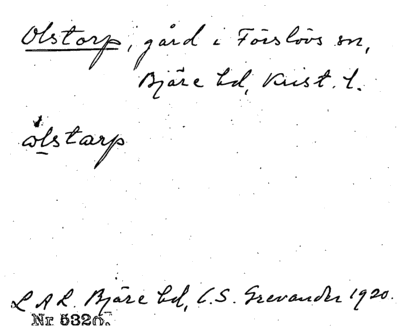 Olstorp, gård i Förslövs sn,
Bjäre hd, Krist. l.
ólstarp
L A L. Bjäre hd, C. S. Grevander 1920.
Nr 5326.